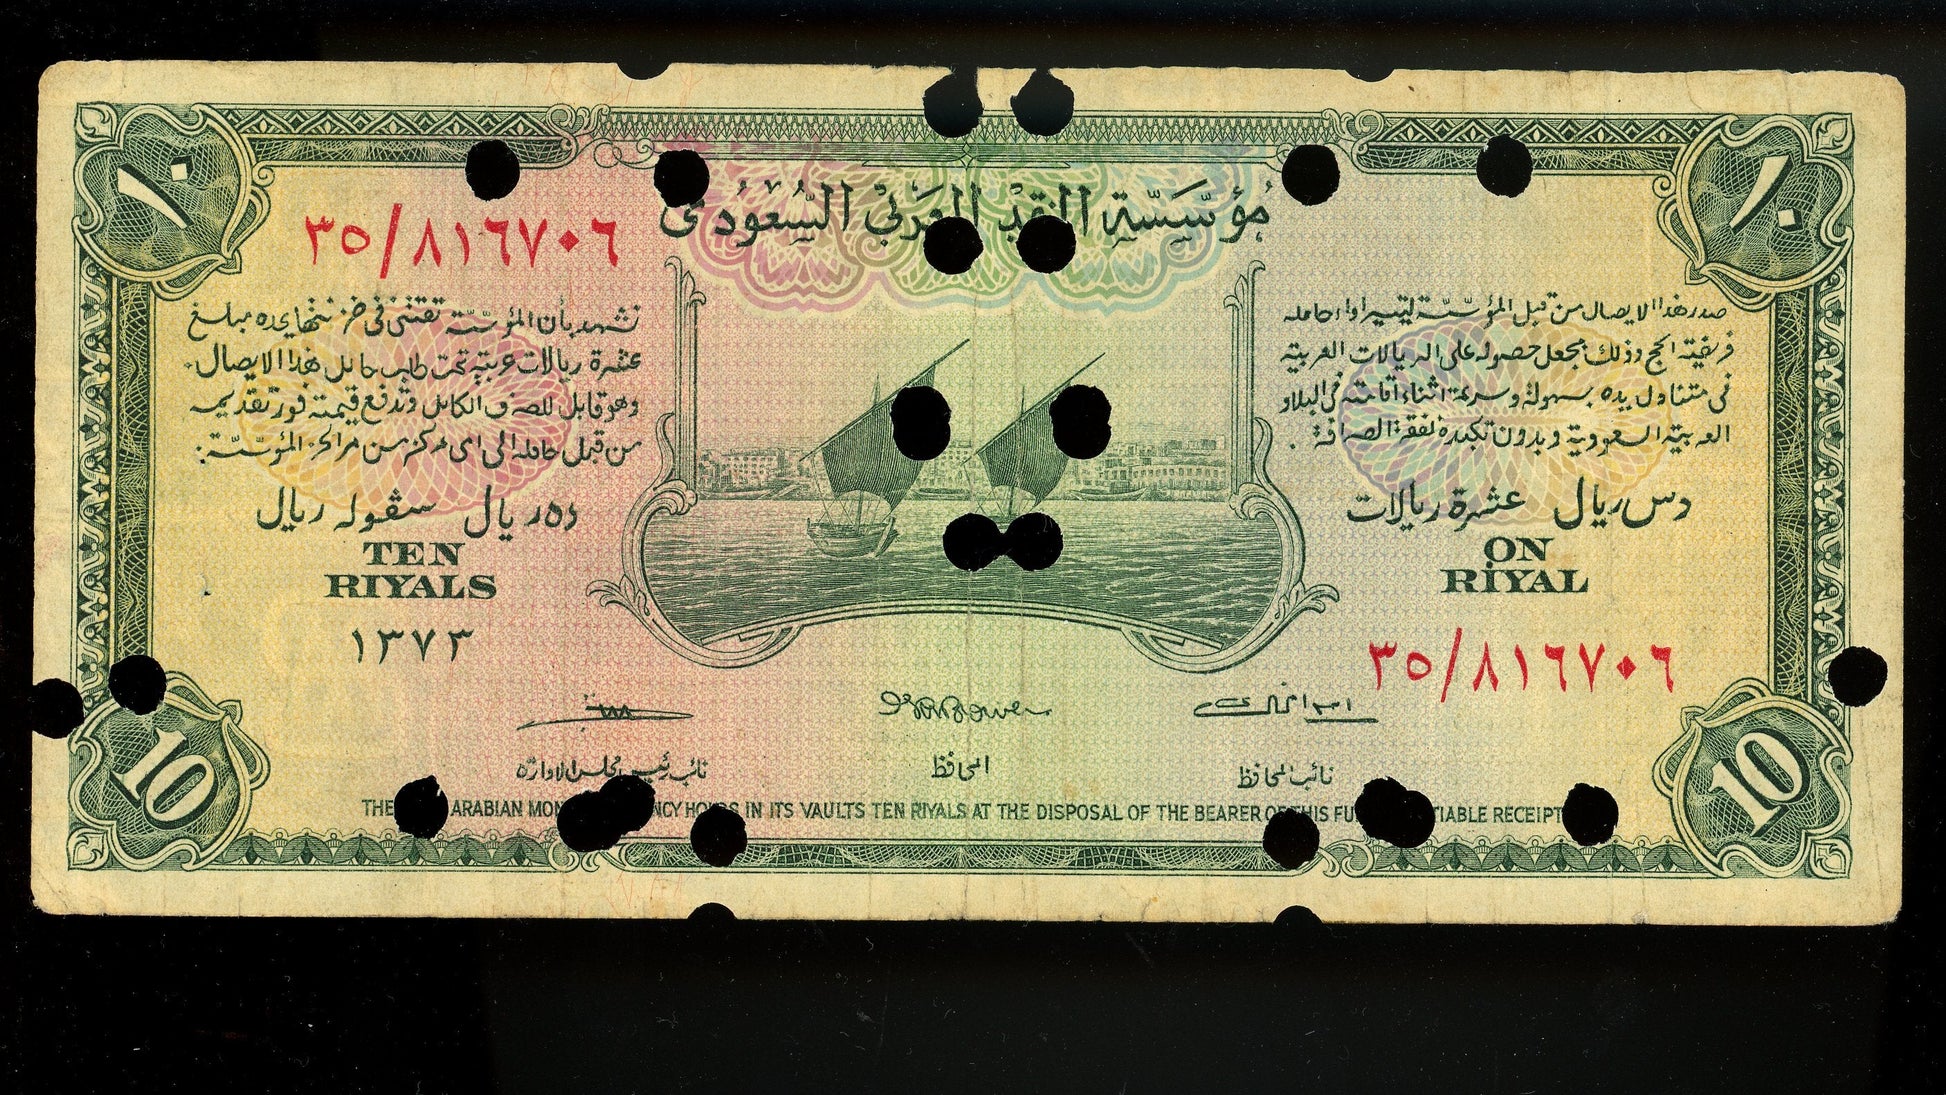 ١٠
١٠
مؤسسة النقد العربي السعودي
٣٥/٨١٦٧٠٦
صدر هذا الايصال من قبل المؤسسة لتيسير اداء حامله
فريضة الحج وذلك بجعل حصوله على الريالات العربية
فى متناول يده بسهولة وسرعة اثناء اقامته فى البلاد
العربية السعودية وبدون تكبده نفقة الصرافة.
دس ريال عشرة ريالات
ON
RIYAL
٣٥/٨١٦٧٠٦
نشهد بأن المؤسسة تقتنى فى خزينتها يده مبلغ
عشرة ريالات عربية تحت طلب حامل هذا الايصال
وهو قابل للصرف الكامل وتدفع قيمته فور تقديمه
من قبل حامله الى اى مركز من مراكز المؤسسة:
ده ريال سڤوله ريال
TEN
RIYALS
١٣٧٣
نائب المحافظ
المحافظ
نائب رئيس مجلس الادارة
THE ARABIAN MON NCY HOLDS IN ITS VAULTS TEN RIYALS AT THE DISPOSAL OF THE BEARER OF THIS FU TIABLE RECEIPT
10
10